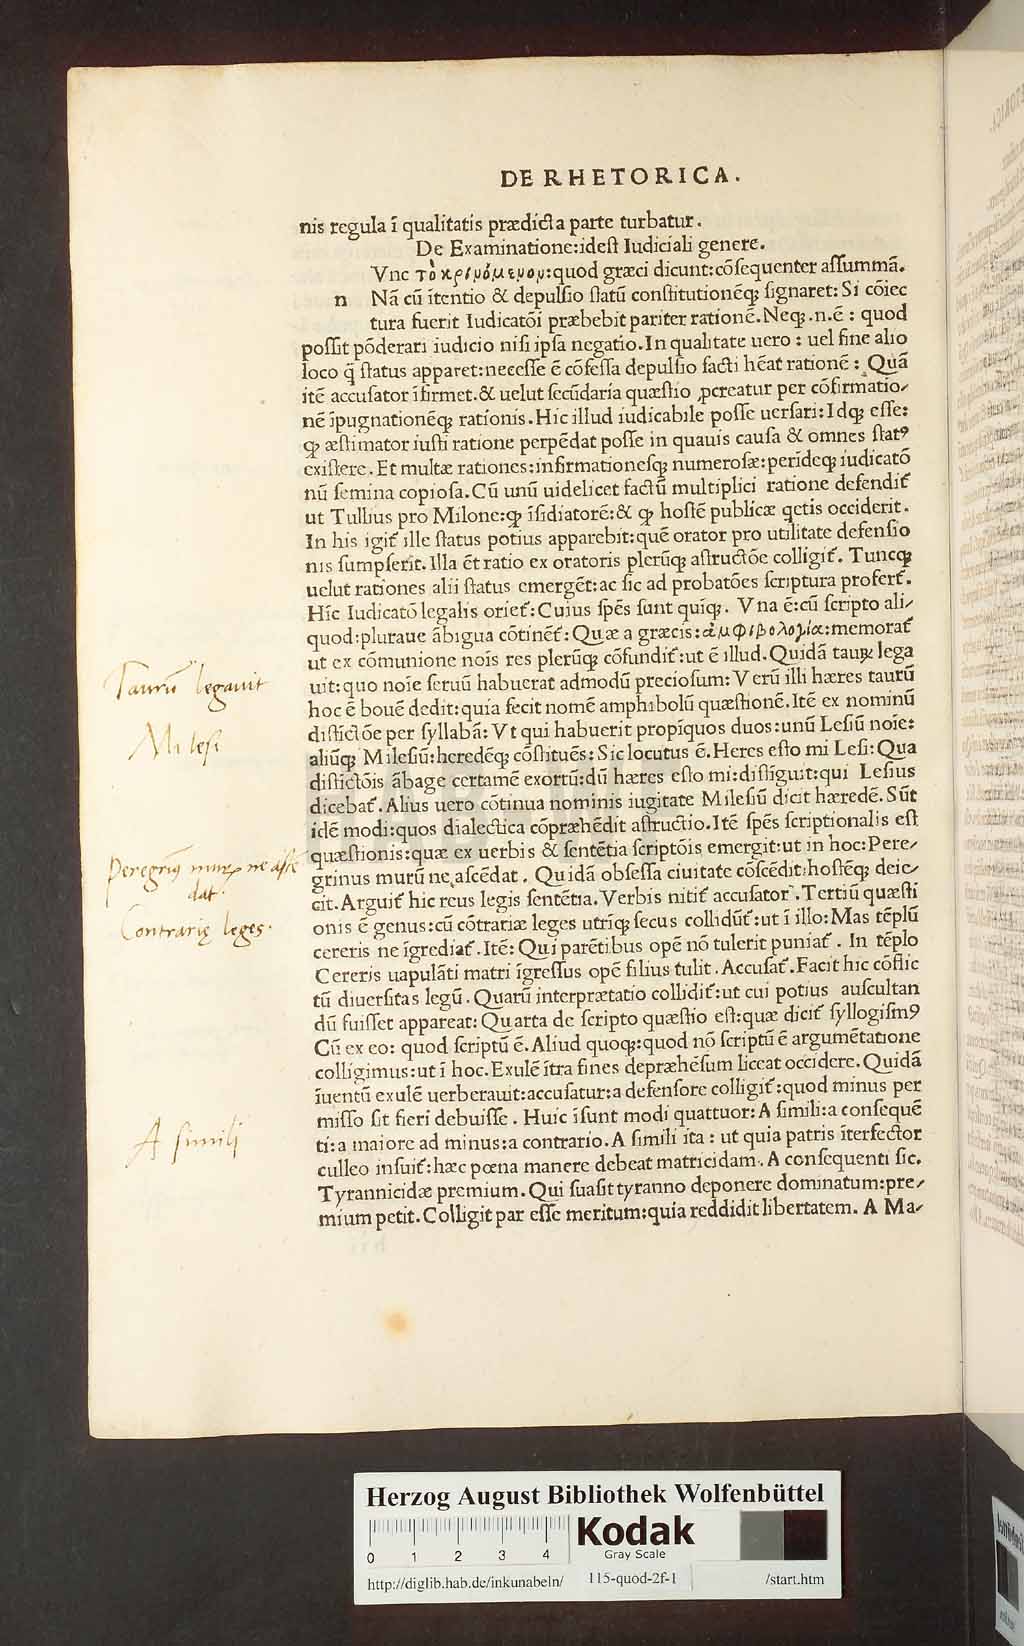 DE RHETORICA.
nis regula ī qualitatis prædicta parte turbatur.
De Examinatione:idest Iudiciali genere.
Vnc τὸ κρινόμενον:quod græci dicunt:cōsequenter assummā.
n Nā cū ītentio & depulsio statū constitutionēq; signaret: Si cōiec
tura fuerit Iudicatōi præbebit pariter rationē. Neq;.n.ē : quod
possit pōderari iudicio nisi ipsa negatio. In qualitate uero : uel fine alio
loco q̄ status apparet:necesse ē cōfessa depulsio facti hēat rationē : Quā
itē accusator īfirmet. & uelut secūdaria quæstio ꝓcreatur per cōfirmatio/
nē īpugnationēq; rationis. Hic illud iudicabile posse uersari: Idq; esse:
ꝙ æstimator iusti ratione perpēdat posse in quauis causa & omnes statꝰ
existere. Et multæ rationes:infirmationesq; numerosæ:perīdeq; iudicatō
nū semina copiosa. Cū unū uidelicet factū multiplici ratione defendit᷑
ut Tullius pro Milone:ꝙ īsidiatorē:& ꝙ hostē publicæ quetis occiderit.
In his igit᷑ ille status potius apparebit:quē orator pro utilitate defensio
nis sumpserit. Illa ēt ratio ex oratoris plerūq; astructōe colligit᷑. Tuncq;
uelut rationes alii status emergēt:ac sic ad probatōes scriptura profert᷑.
Hīc Iudicatō legalis oriet᷑: Cuius spēs sunt quīq;. Vna ē:cū scripto ali/
quod:pluraue ābigua cōtinēt᷑: Quæ a græcis:ἀμφιβολογία:memorat᷑
ut ex cōmunione nois res plerūq; cōfundit᷑:ut ē illud. Quidā tauꝝ lega
uit:quo noie seruū habuerat admodū preciosum: Verū illi hæres taurū
hoc ē bouē dedit:quia fecit nomē amphibolū quæstionē. Itē ex nominū
distictōe per syllabā: Vt qui habuerit propīquos duos:unū Lesiū noie:
aliūq; Milesiū:heredēq; cōstituēs: Sic locutus ē. Heres esto mi Lesi: Qua
distictōis ābage certamē exortū:dū hæres esto mi:distīguit:qui Lesius
dicebat᷑. Alius uero cōtinua nominis iugitate Milesiū dicit hæredē. Sūt
idē modi:quos dialectica cōpræhēdit astructio. Itē spēs scriptionalis est
quæstionis:quæ ex uerbis & sentētia scriptōis emergit:ut in hoc: Pere/
grinus murū ne ascēdat. Quidā obsessa ciuitate cōscēdit:hostēq; deie/
cit. Arguit᷑ hic reus legis sentētia. Verbis nitit᷑ accusator. Tertiū quæsti
onis ē genus:cū cōtrariæ leges utriq; secus collidūt᷑:ut ī illo: Mas tēplū
cereris ne īgrediat᷑. Itē: Qui parētibus opē nō tulerit puniat᷑. In tēplo
Cereris uapulāti matri īgressus opē filius tulit. Accusat᷑. Facit hic cōflic
tū diuersitas legū. Quarū interprætatio collidit᷑:ut cui potius auscultan
dū fuisset appareat: Quarta de scripto quæstio est:quæ dicit᷑ syllogismꝰ
Cū ex eo: quod scriptū ē. Aliud quoq;:quod nō scriptū ē argumētatione
colligimus:ut ī hoc. Exulē ītra fines depræhēsum liceat occidere. Quidā
īuentū exulē uerberauit:accusatur:a defensore colligit᷑:quod minus per
misso sit fieri debuisse. Huic īsunt modi quattuor: A simili:a consequē
ti:a maiore ad minus:a contrario. A simili ita : ut quia patris īterfector
culleo insuit᷑:hæc pœna manere debeat matricidam. A consequenti sic.
Tyrannicidæ premium. Qui suasit tyranno deponere dominatum:pre/
mium petit. Colligit par esse meritum:quia reddidit libertatem. A Ma/
Taurū legauit
Mi lesi
Peregrinꝰ muꝝ ne ascē
dat.
Contrarię leges.
A simili
HAB-WF
Herzog August Bibliothek Wolfenbüttel
0 1 2 3 4
Kodak
Gray Scale
http://diglib.hab.de/inkunabeln/ 115-quod-2f-1 /start.htm